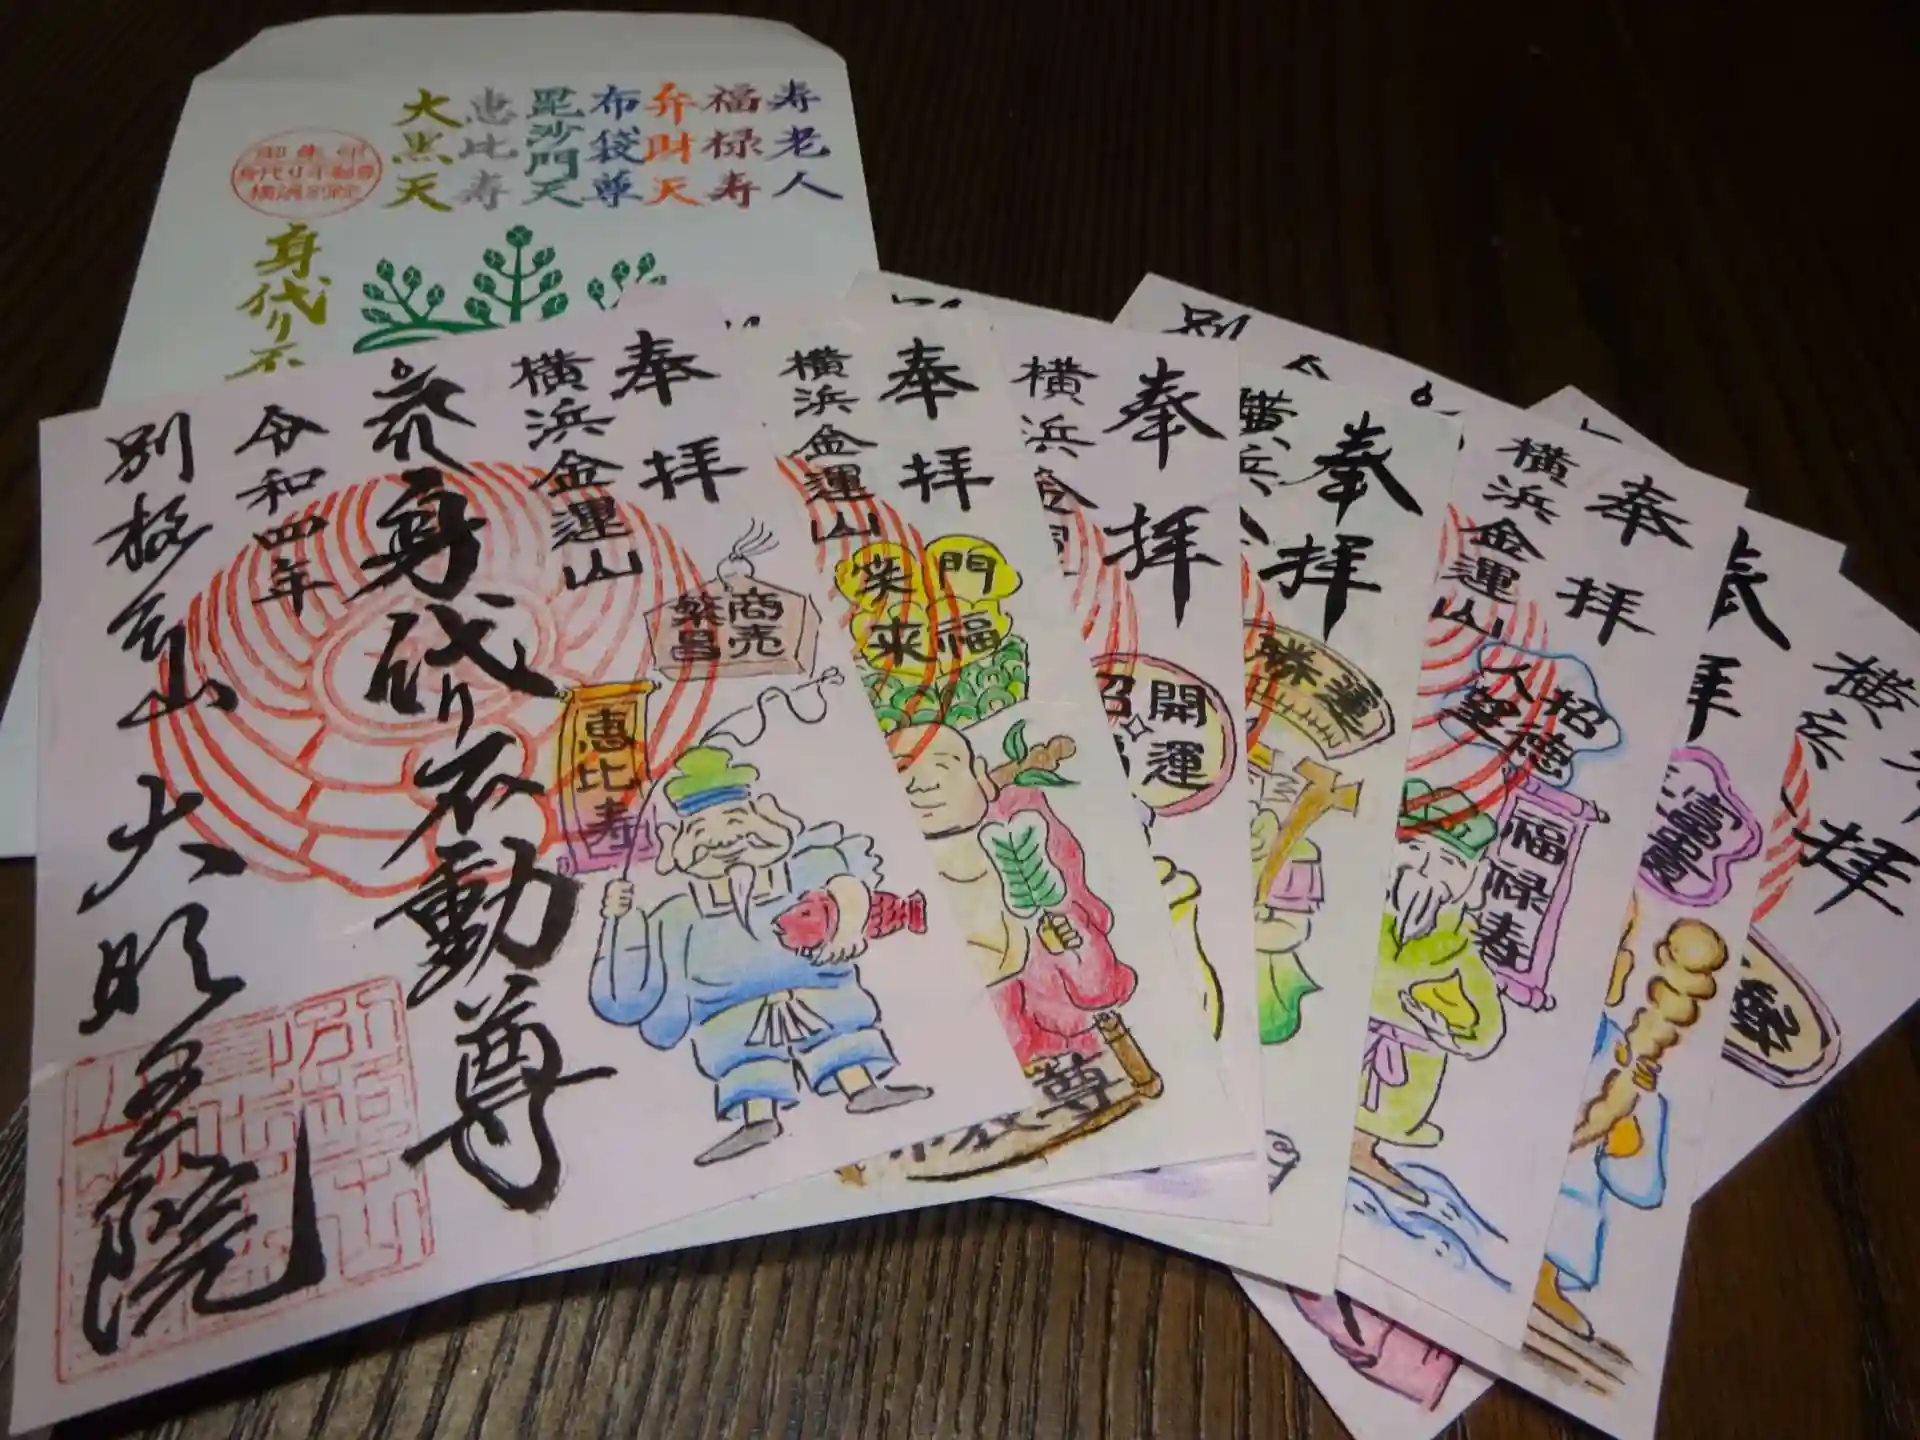 寿老人
福禄寿
弁財天
布袋尊
毘沙門天
恵比寿
大黒天
御朱印
身代り不動尊
横浜別院
身代り不
奉拝
横浜金運山
商売
繁昌
恵比寿
身代り不動尊
令和四年
別格本山
大明王院
奉拝
横浜金運山
門福
笑来
尊
奉拝
横浜金
開運
招
奉拝
横浜
勝運
奉拝
横浜金運山
招徳
人望
福禄寿
奉拝
富貴
横浜
拝
別